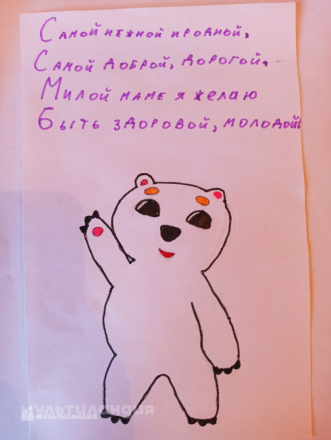 Самой нежной и родной,
Самой доброй, дорогой, -
Милой маме я желаю
Быть здоровой, молодой!
МУЛЬТИЛАНДИЯ
МУЛЬТИЛАНДИЯ